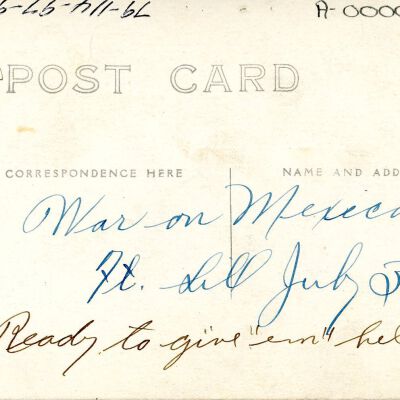 A-0000
POST CARD
CORRESPONDENCE HERE
NAME AND ADD
War on Mexico
Ft. Sill July
Ready to give "em" hel